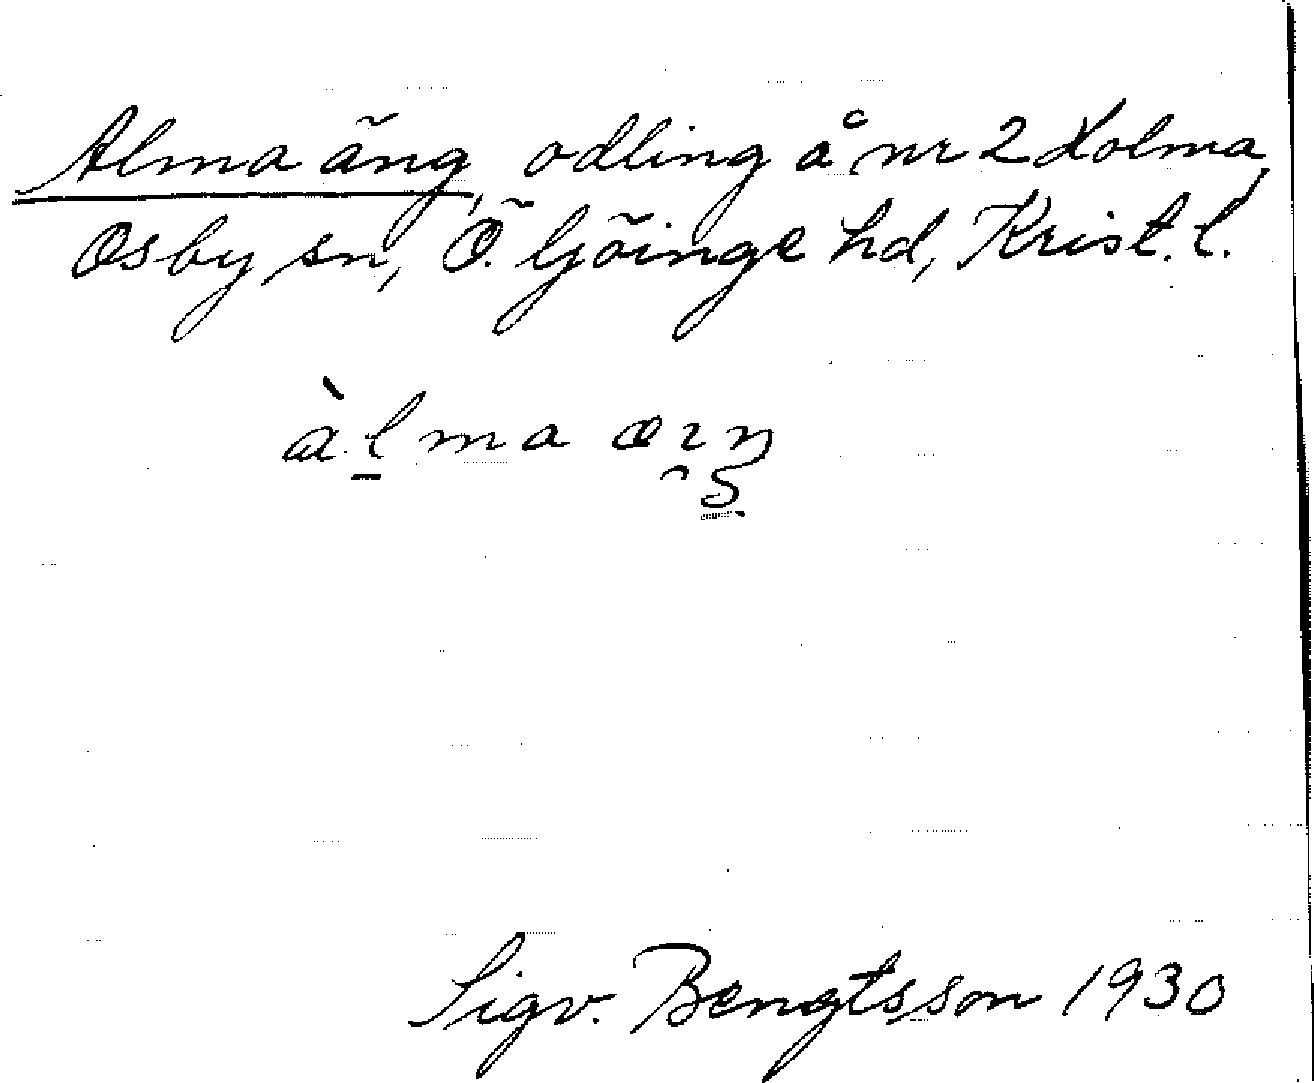 Alma äng, odling å nr 2 Holma,
Osby sn, Ö. Göinge hd, Krist. l.
àlma æɿŋ
Sigv. Bengtsson 1930